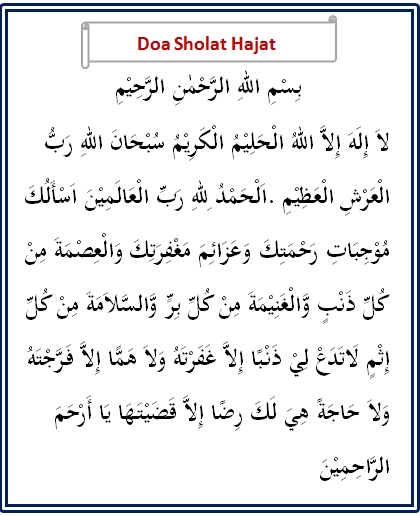 Doa Sholat Hajat
بِسْمِ اللهِ الرَّحْمٰنِ الرَّحِيْمِ
لاَ إِلَهَ إِلاَّ اللهُ الْحَلِيْمُ الْكَرِيْمُ سُبْحَانَ اللهِ رَبُّ
الْعَرْشِ الْعَظِيْمِ .اَلْحَمْدُ لِلهِ رَبِّ الْعَالَمِيْنَ اَسْأَلُكَ
مُوْجِبَاتِ رَحْمَتِكَ وَعَزَائِمَ مَغْفِرَتِكَ وَالْعِصْمَةَ مِنْ
كُلِّ ذَنْبٍ وَّالْغَنِيْمَةَ مِنْ كُلِّ بِرٍّ وَّالسَّلاَمَةَ مِنْ كُلِّ
إِثْمٍ لَاتَدَعْ لِيْ ذَنْبًا إِلاَّ غَفَرْتَهُ وَلاَ هَمًّا إِلاَّ فَرَّجْتَهُ
وَلاَ حَاجَةً هِيَ لَكَ رِضًا إِلاَّ قَضَيْتَهَا يَا أَرْحَمَ
الرَّاحِمِيْنَ